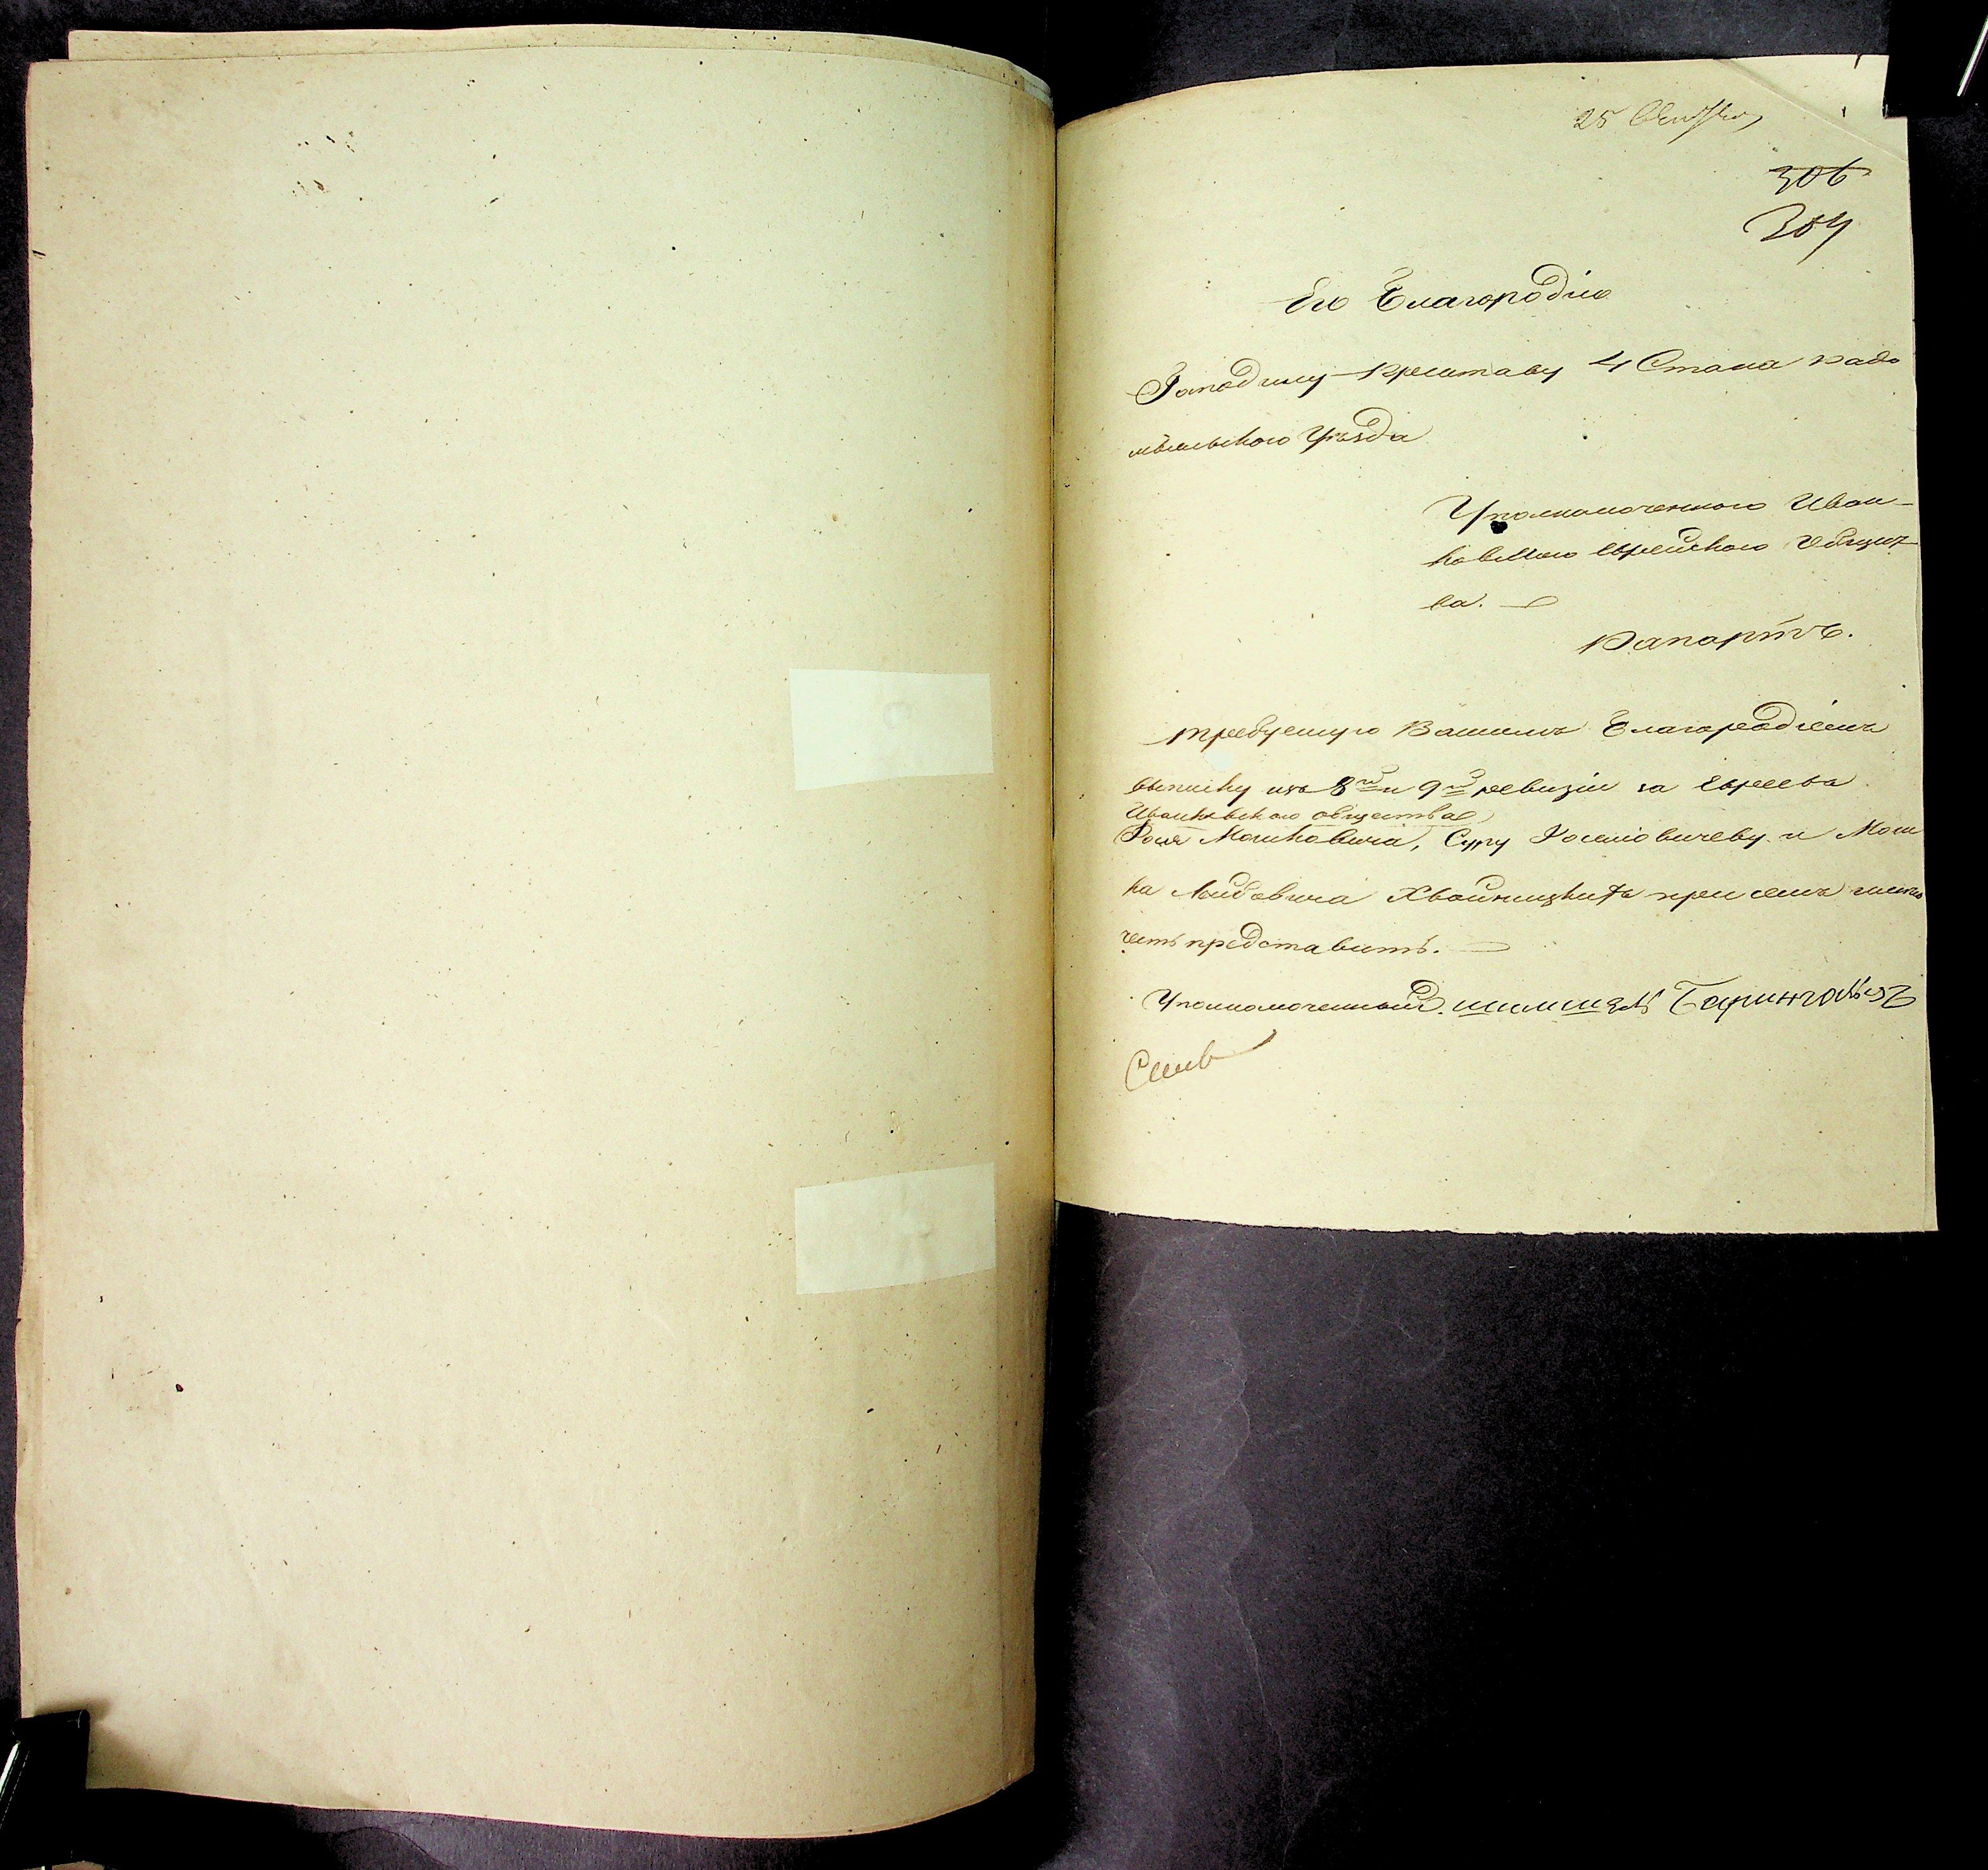 25
306
304
Его Благородію
Господину Приставу 4 Стана Радо
мысльского Уѣзда
Уполномоченного Иван-
ковского Еврейского Общест
ва.
Рапортъ.
Требуемую Вашимъ Благородіемъ
выписку изъ 8й и 9й ревизіи за Евреевъ
Иванковского общества
Мошковича, Суру и Мош
ка Лейбовича Хвойницкихъ при семъ имѣю
честь представить.
Уполномоченный